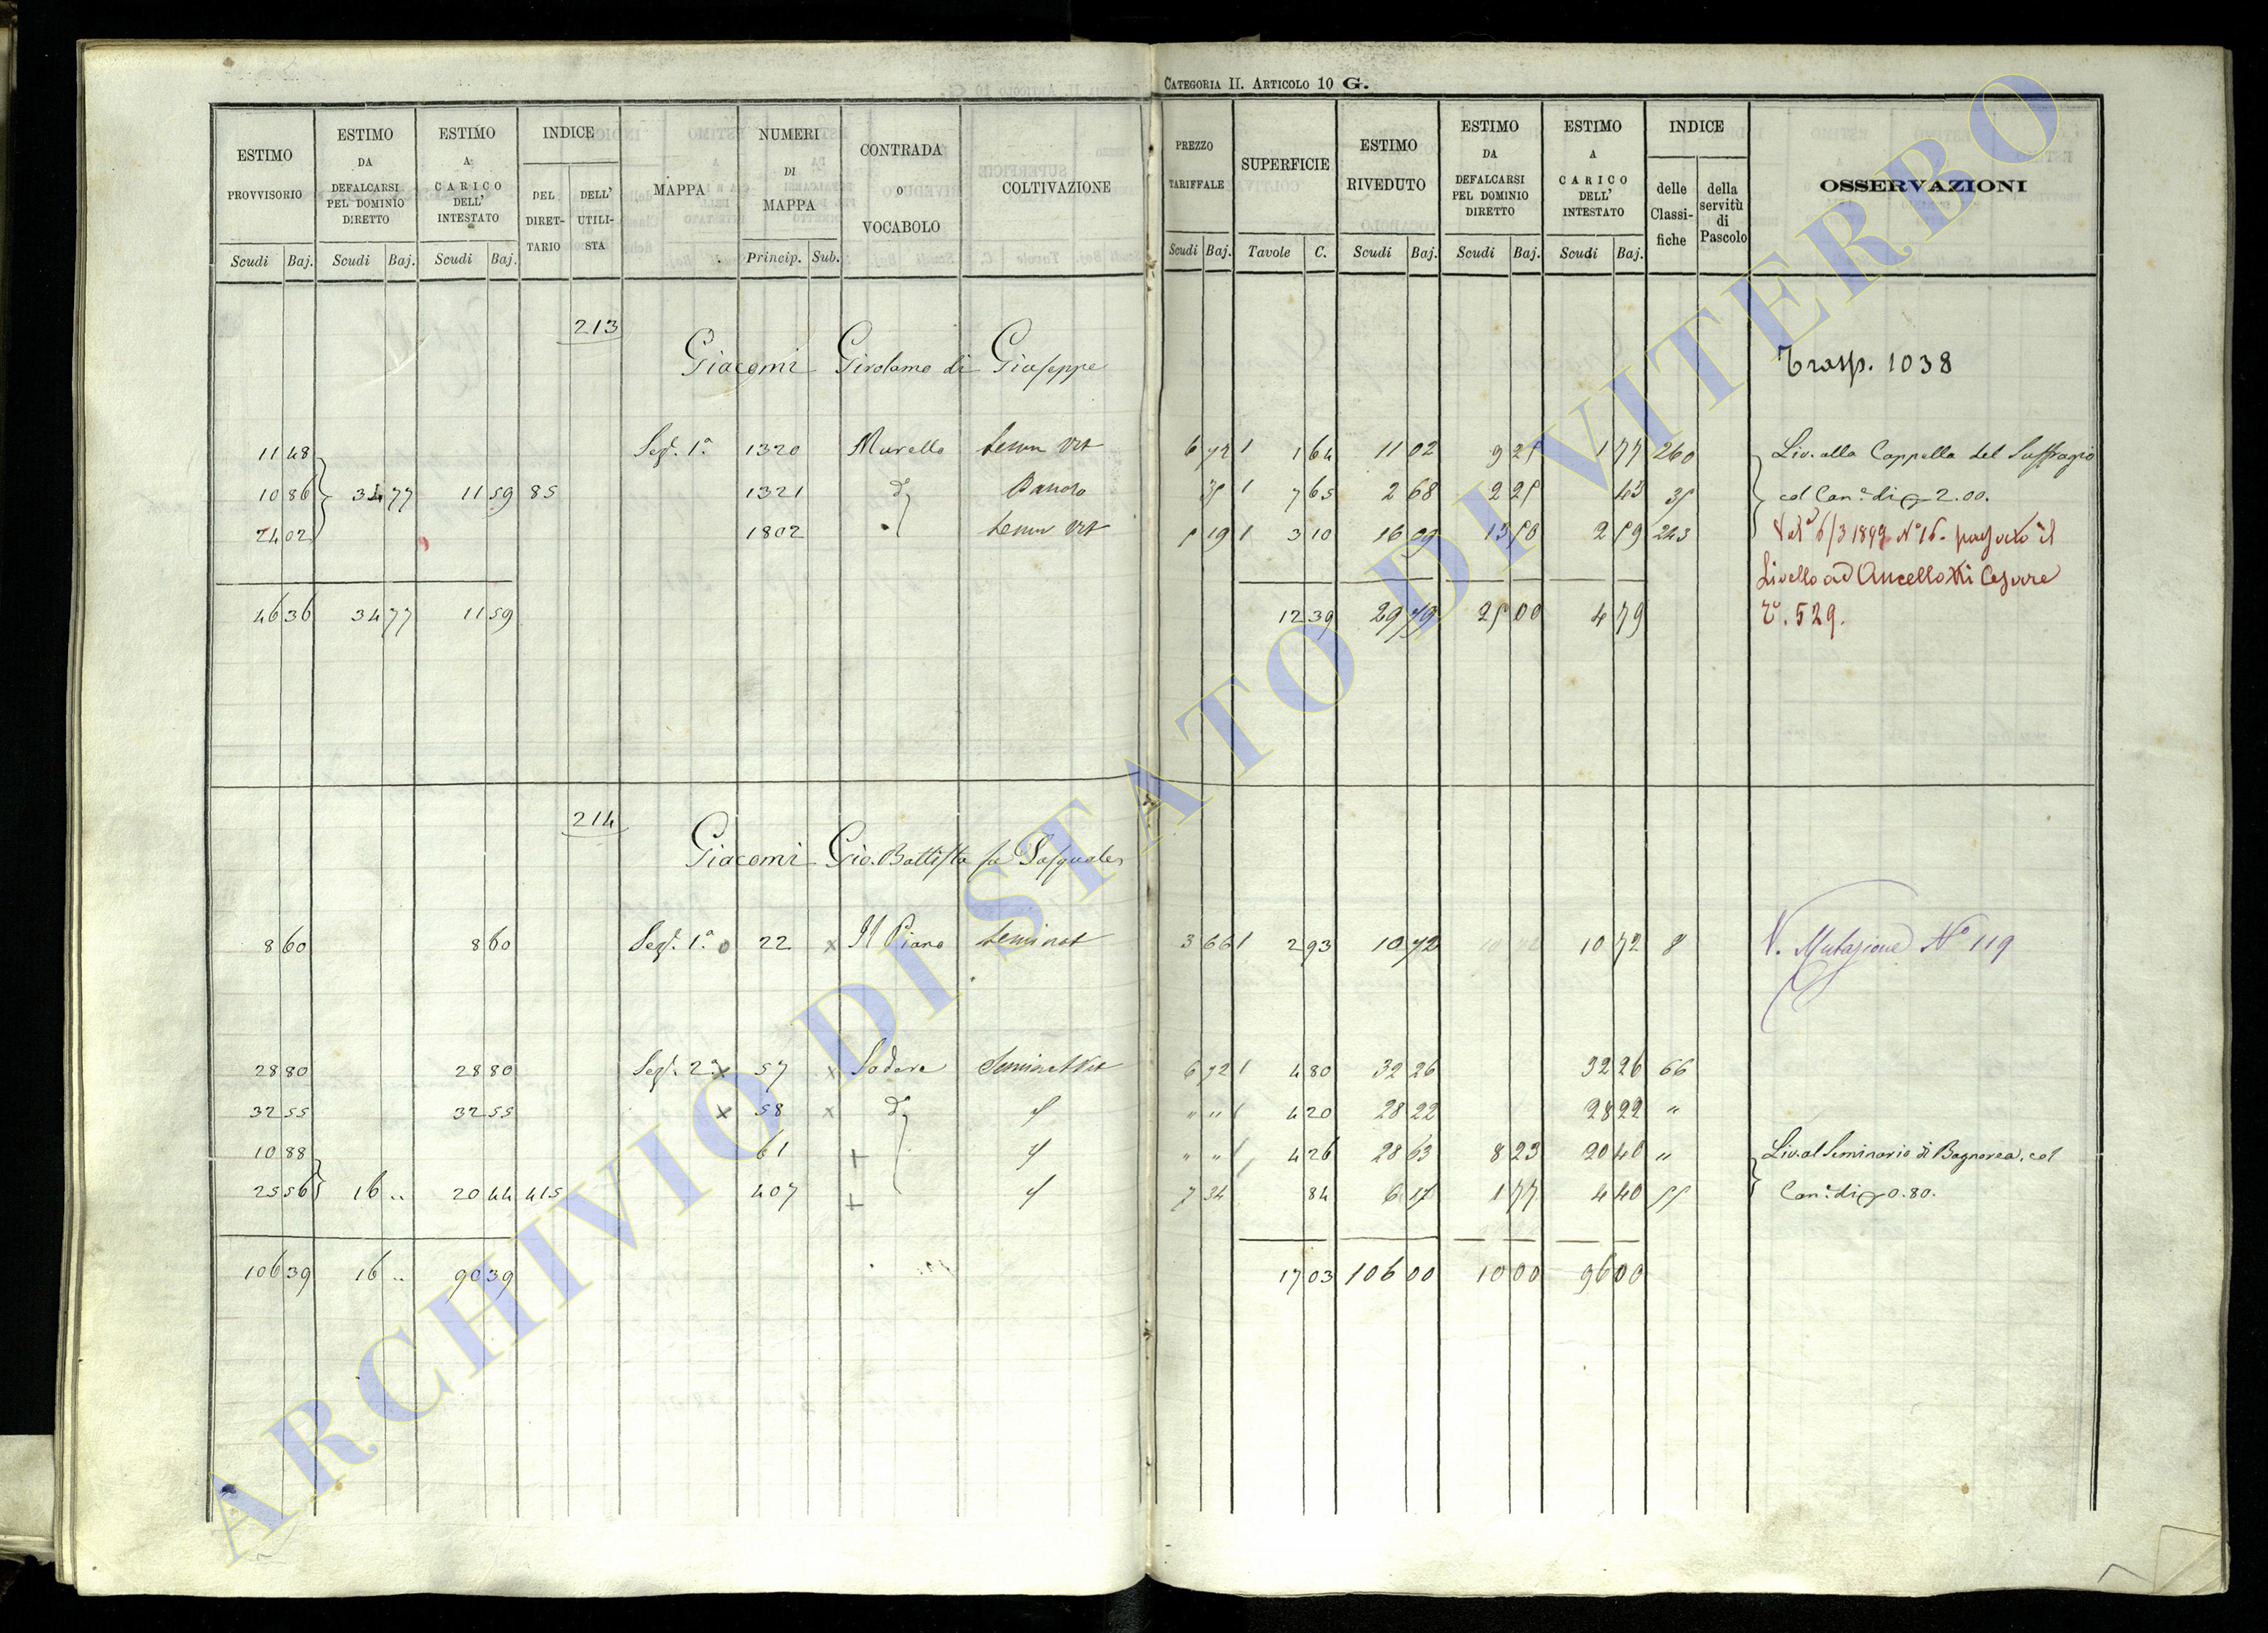 CATEGORIA II. ARTICOLO 10 G.
ESTIMO PROVVISORIO | ESTIMO DA DEFALCARSI PEL DOMINIO DIRETTO | ESTIMO A CARICO DELL' INTESTATO | INDICE DEL DIRETTARIO | DELL' UTILISTA | MAPPA | NUMERI DI MAPPA | CONTRADA o VOCABOLO | COLTIVAZIONE | PREZZO TARIFFALE | SUPERFICIE | ESTIMO RIVEDUTO | ESTIMO DA DEFALCARSI PEL DOMINIO DIRETTO | ESTIMO A CARICO DELL' INTESTATO | INDICE delle Classifiche | della servitù di Pascolo | OSSERVAZIONI
Scudi Baj. | Scudi Baj. | Scudi Baj. | Princip. Sub. | Scudi Baj. | Tavole C. | Scudi Baj. | Scudi Baj. | Scudi Baj.
213
Giacomi Girolamo di Giuseppe | Trasp. 1038
11 48 | Sez. 1.a | 1320 | Murello | Semin Vit | 6 72 | 1 64 | 11 02 | 9 25 | 1 77 | 260 | Liv. alla Cappella del Suffragio
10 86 | 34 77 | 11 59 | 85 | 1321 | d.o | 35 | 7 65 | 2 68 | 2 25 | 43 | 35 | col Can.e di 2.00.
24 02 | 1802 | Semin Vit | 5 19 | 3 10 | 16 09 | 13 50 | 2 59 | 243 | N° 16
Livello ad Ancellotti Cesare
46 36 | 34 77 | 11 59 | 12 39 | 29 79 | 25 00 | 4 79 | 529.
214
Giacomi Gio. Battista fu Pasquale
8 60 | 8 60 | Sez. 1.a | 22 | Il Piano | Seminat | 3 66 | 2 93 | 10 72 | 10 72 | 8 | V. Mutazione N° 119
28 80 | 28 80 | Sez. 2.a | 57 | Sodera | Seminat Vit | 6 72 | 4 80 | 32 26 | 32 26 | 66
32 55 | 32 55 | 58 | d.o | " " | 4 20 | 28 22 | 28 22 | "
10 88 | 61 | " " | 4 26 | 28 63 | 8 23 | 20 40 | " | Liv. al Seminario di Bagnorea, col
25 56 | 16 .. | 20 44 | 415 | 407 | 7 34 | 84 | 6 17 | 1 77 | 4 40 | 55 | Can.e di 0.80.
106 39 | 16 .. | 90 39 | 17 03 | 106 00 | 10 00 | 96 00
ARCHIVIO DI STATO DI VITERBO